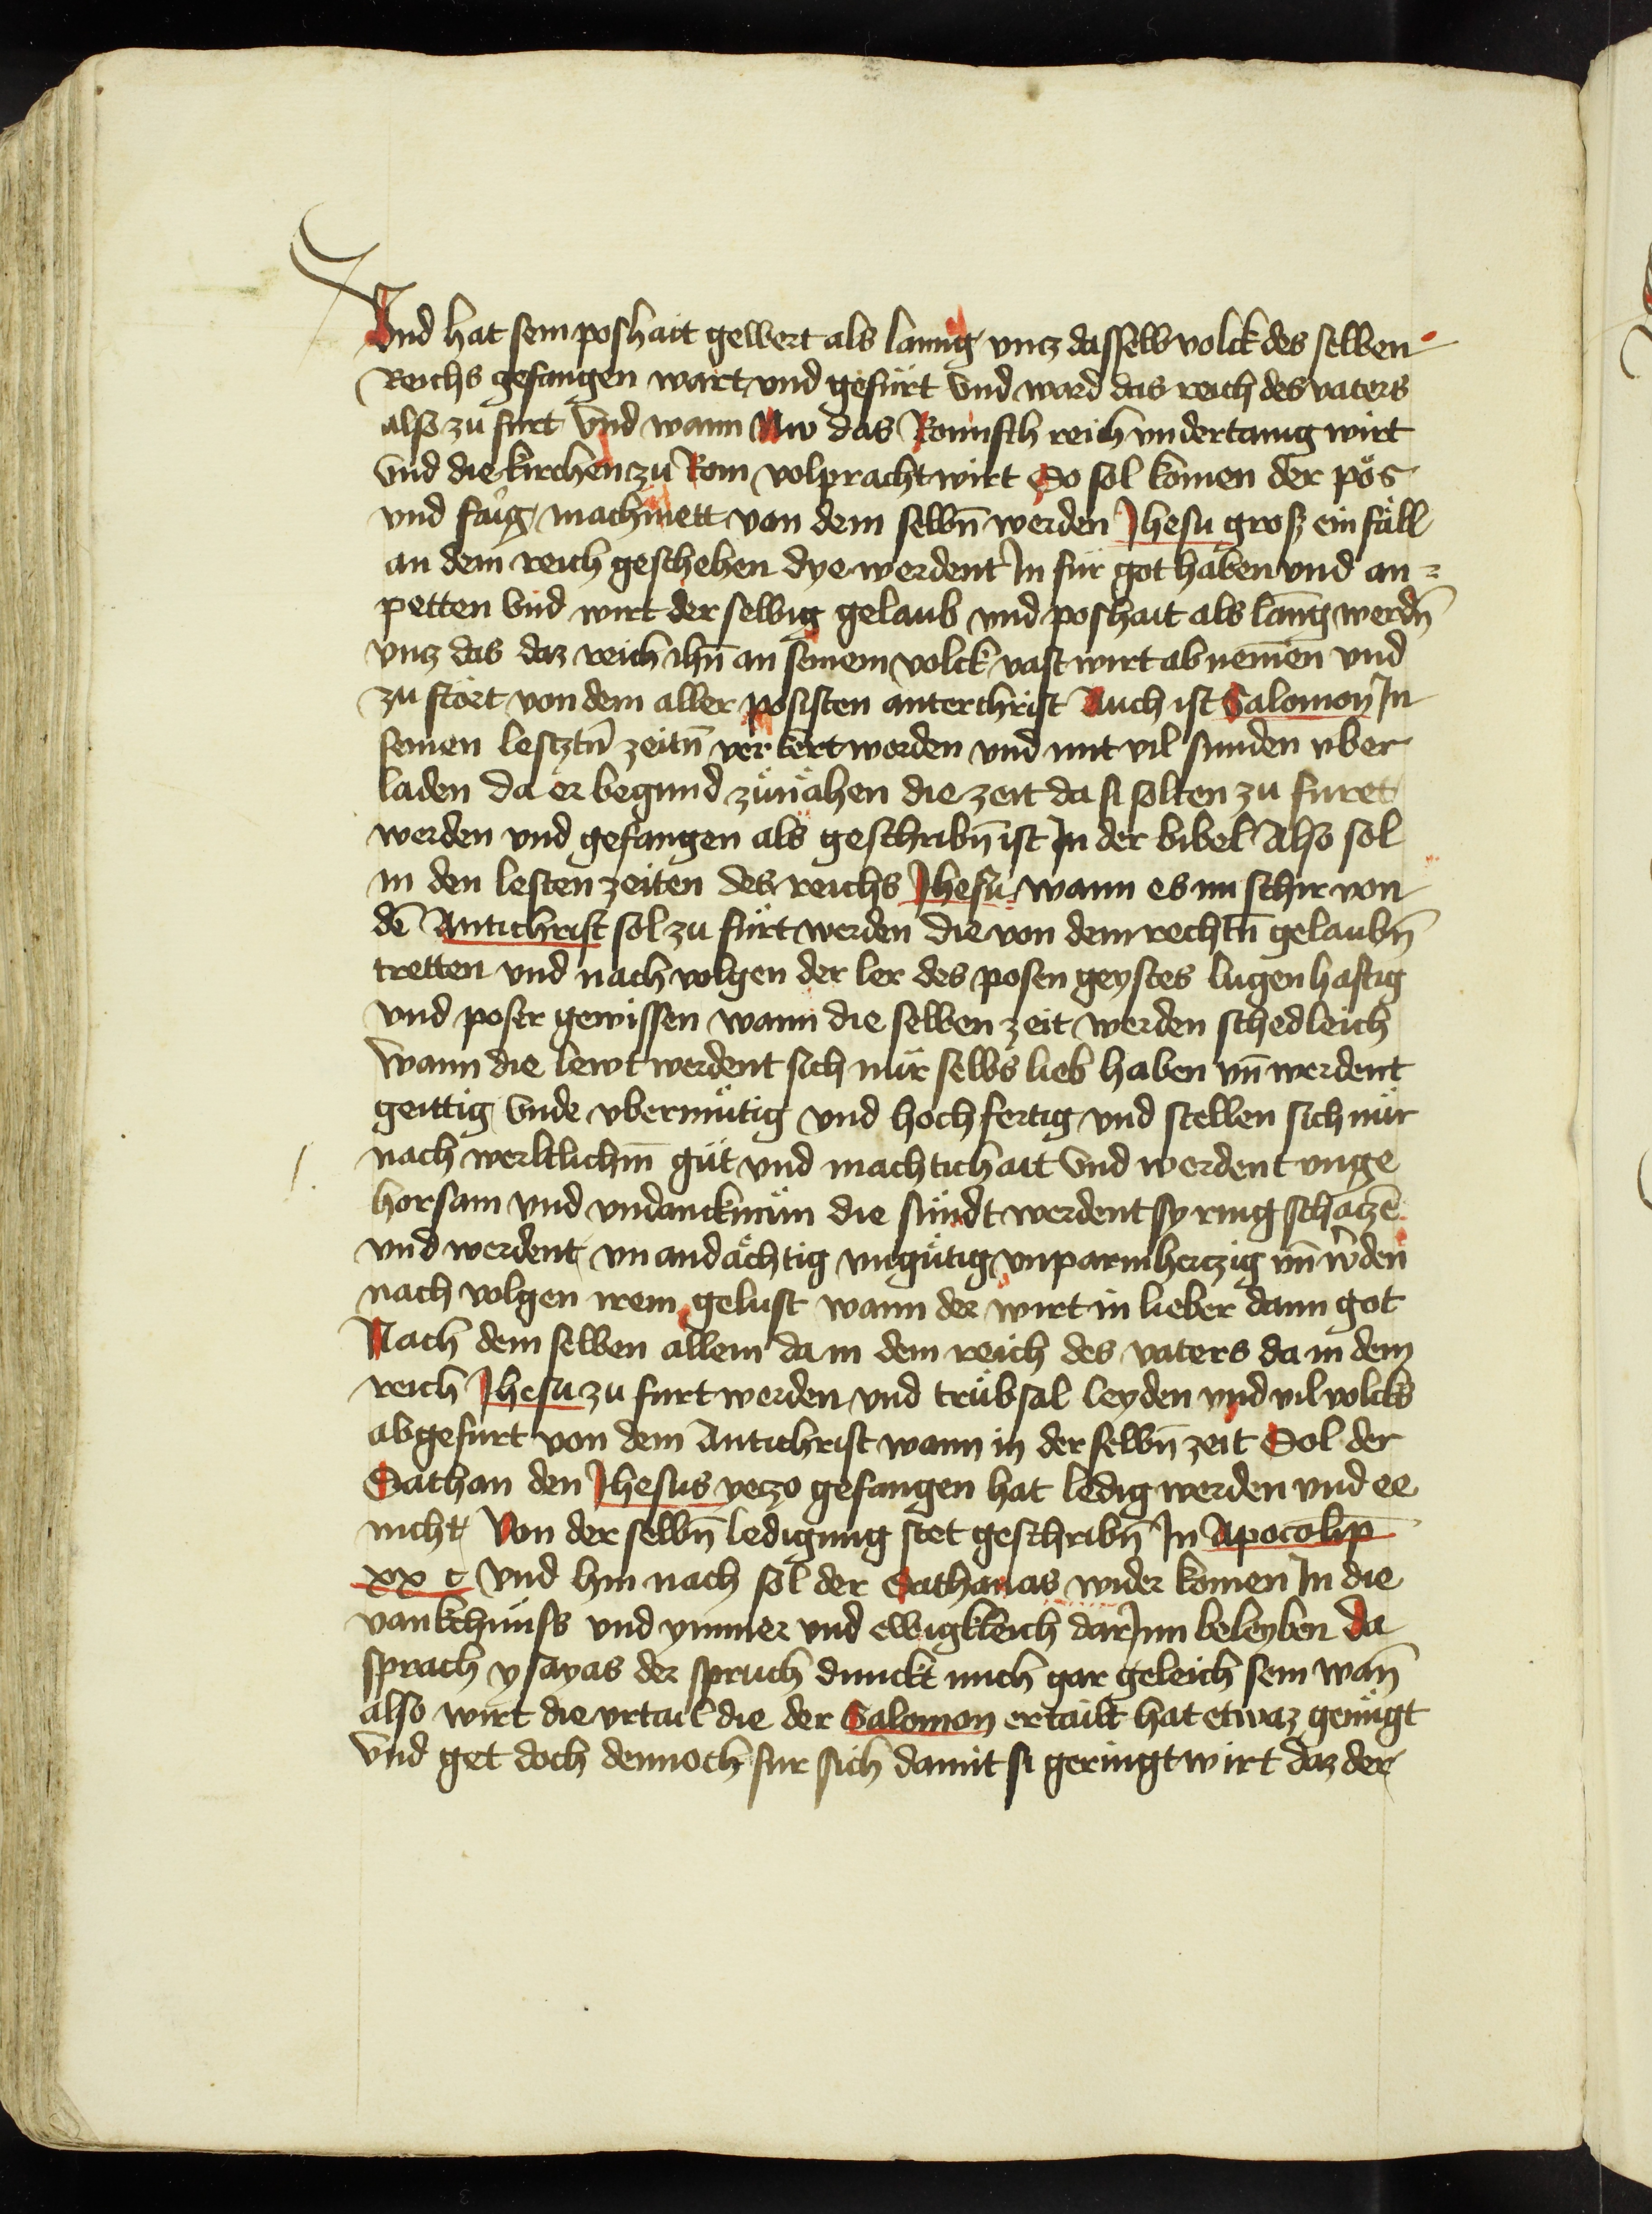 Vnd hat sein poshait gewert als lanng vncz dasselb volck des selben
Reichs gefangen wart vnd gefürt vnd ward das reich des vaters
also zu furt Vnd wann Nw das Romisch reich vndertanig wirt
Vnd die kirchen zu Rom volpracht wirt So sol komen der pös
vnd faig machmett von dem selbn̄ werden Jhesu groß ein fäll
an dem reich geschehen dye werdent In für got haben vnd an=
petten Vnd wirt der selbig gelaub vnd poshait als lanng werdn̄
vncz das daz reich ihū an seinem volck vast wirt ab nemen vnd
zu stört von dem aller posisten anterchrist Auch ist Salomon In
seinen lesztn̄ zeitn̄ ver kert worden vnd mit vil sunden vber
laden da er begund zünähen die zeit da si solten zu furet
werden vnd gefangen als geschribn̄ ist In der bibel Also sol
in den lesten zeiten des reichs Jhesu wann es nu schir von
dē Antichrist sol zu fürt werden die von dem rechtn̄ gelaubn̄
tretten vnd nach volgen der ler des posen geystes lugenhaftig
vnd poser gewissen wann die selben zeit werden schedleich
Wann die lewt werdent sich nür selbs lieb haben vn̄ werdent
geittig Vnde vbermütig vnd hochfertig vnd stellen sich nür
nach werltlichm̄ güt vnd mächtichait Vnd werdent vnge
horsam vnd vndancknäm die sündt werdent sy ring schaczē
vnd werdent vn andächtig vngütig vnparmherczig vn̄ wden
nach volgen irem gelust wann der wirt in lieber dann got
Nach dem selben allem da in dem reich des vaters da in dem
reich Jhesu zu furt werden vnd trübsal leyden vnd vil volcks
abgefurt von dem Antichrist wann in der selbn̄ zeit Sol der
Sathan den Jhesus yeczo gefangen hat ledig werden vnd ee
nicht Von der selbn̄ ledigung stet geschribn̄ In Apocolip̄
xx c Vnd hin nach sol der Sathanas wider komen In die
vankchnüss vnd ymmer vnd ewigkleich darJnn beleyben Da
sprach ysayas der spruch dunckt mich gar geleich sein wan̄
also wirt die vrtail die der Salomon ertailt hat etwaz genügt
Vnd get doch dennoch fur sich damit si geringt wirt daz der